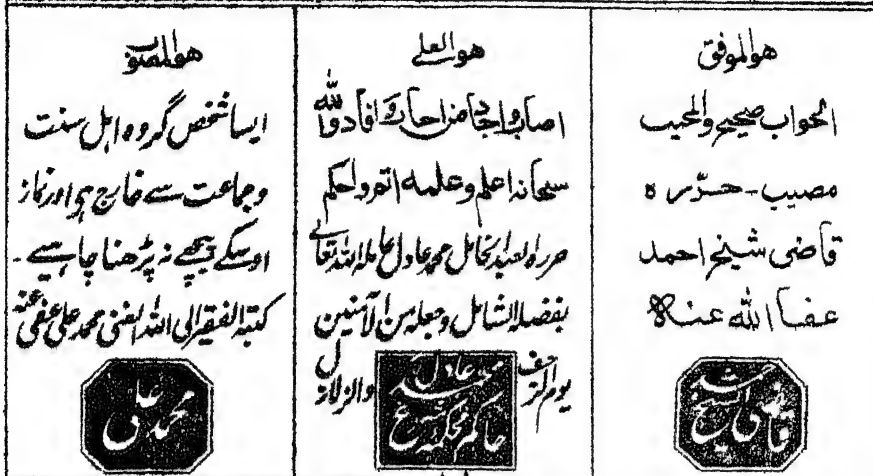 هو الموفق
الجواب صحیح والمجیب
مصیب - حرّرہ
قاضی شیخ احمد
عفا اللہ عنہ
هو العلی
اصاب واجاد من اجاب وافاد واللہ
سبحانہ اعلم وعلمہ اتم واحکم
حررہ العبد الخامل محمد عادل عاملہ اللہ تعالی
بفضلہ الشامل وجعلہ من الآمنین
یوم والزلازل
محمد عادل
حاکم محکمہ شرع
هو المصوب
ایسا شخص گروہ اہل سنت
وجماعت سے خارج ہے اور نماز
اوسکے پیچھے نہ پڑھنا چاہیے ۔
کتبہ الفقیر الی اللہ الغنی محمد علی عفی عنہ
محمد علی